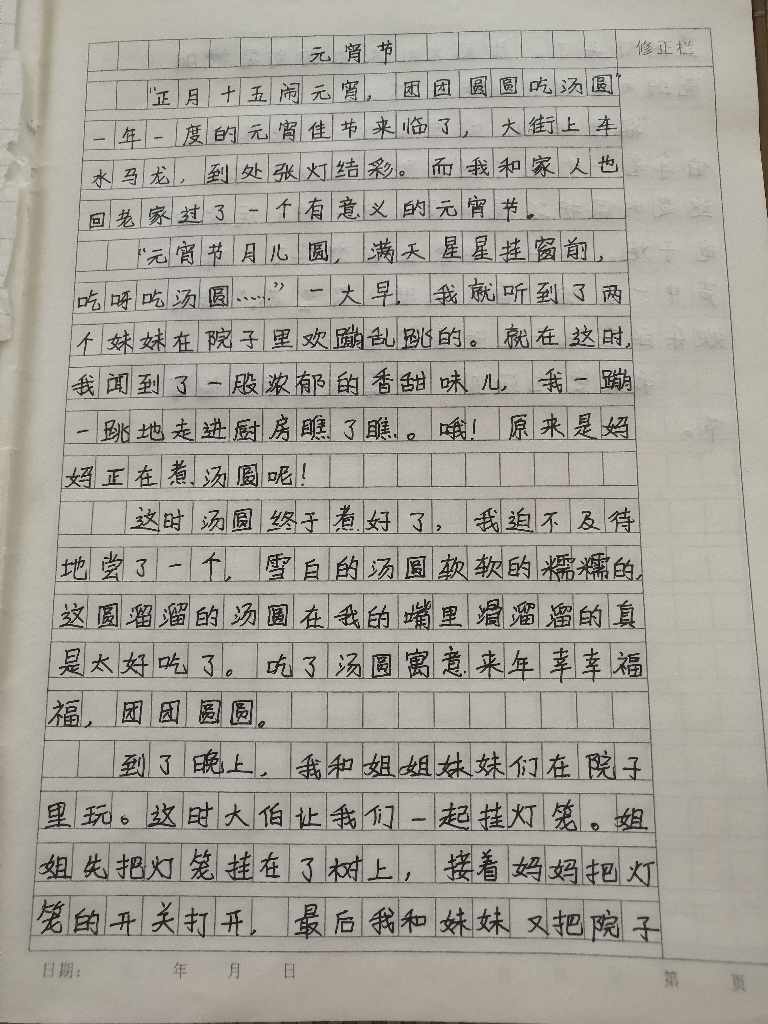 元宵节
修正栏
“正月十五闹元宵，团团圆圆吃汤圆”
一年一度的元宵佳节来临了，大街上车
水马龙，到处张灯结彩。而我和家人也
回老家过了一个有意义的元宵节。
“元宵节月儿圆，满天星星挂窗前，
吃呀吃汤圆……”一大早，我就听到了两
个妹妹在院子里欢蹦乱跳的。就在这时，
我闻到了一股浓郁的香甜味儿，我一蹦
一跳地走进厨房瞧了瞧。哦！原来是妈
妈正在煮汤圆呢！
这时汤圆终于煮好了，我迫不及待
地尝了一个，雪白的汤圆软软的糯糯的，
这圆溜溜的汤圆在我的嘴里滑溜溜的真
是太好吃了。吃了汤圆寓意来年幸幸福
福，团团圆圆。
到了晚上，我和姐姐妹妹们在院子
里玩。这时大伯让我们一起挂灯笼。姐
姐先把灯笼挂在了树上，接着妈妈把灯
笼的开关打开，最后我和妹妹又把院子
日期： 年 月 日 第 页